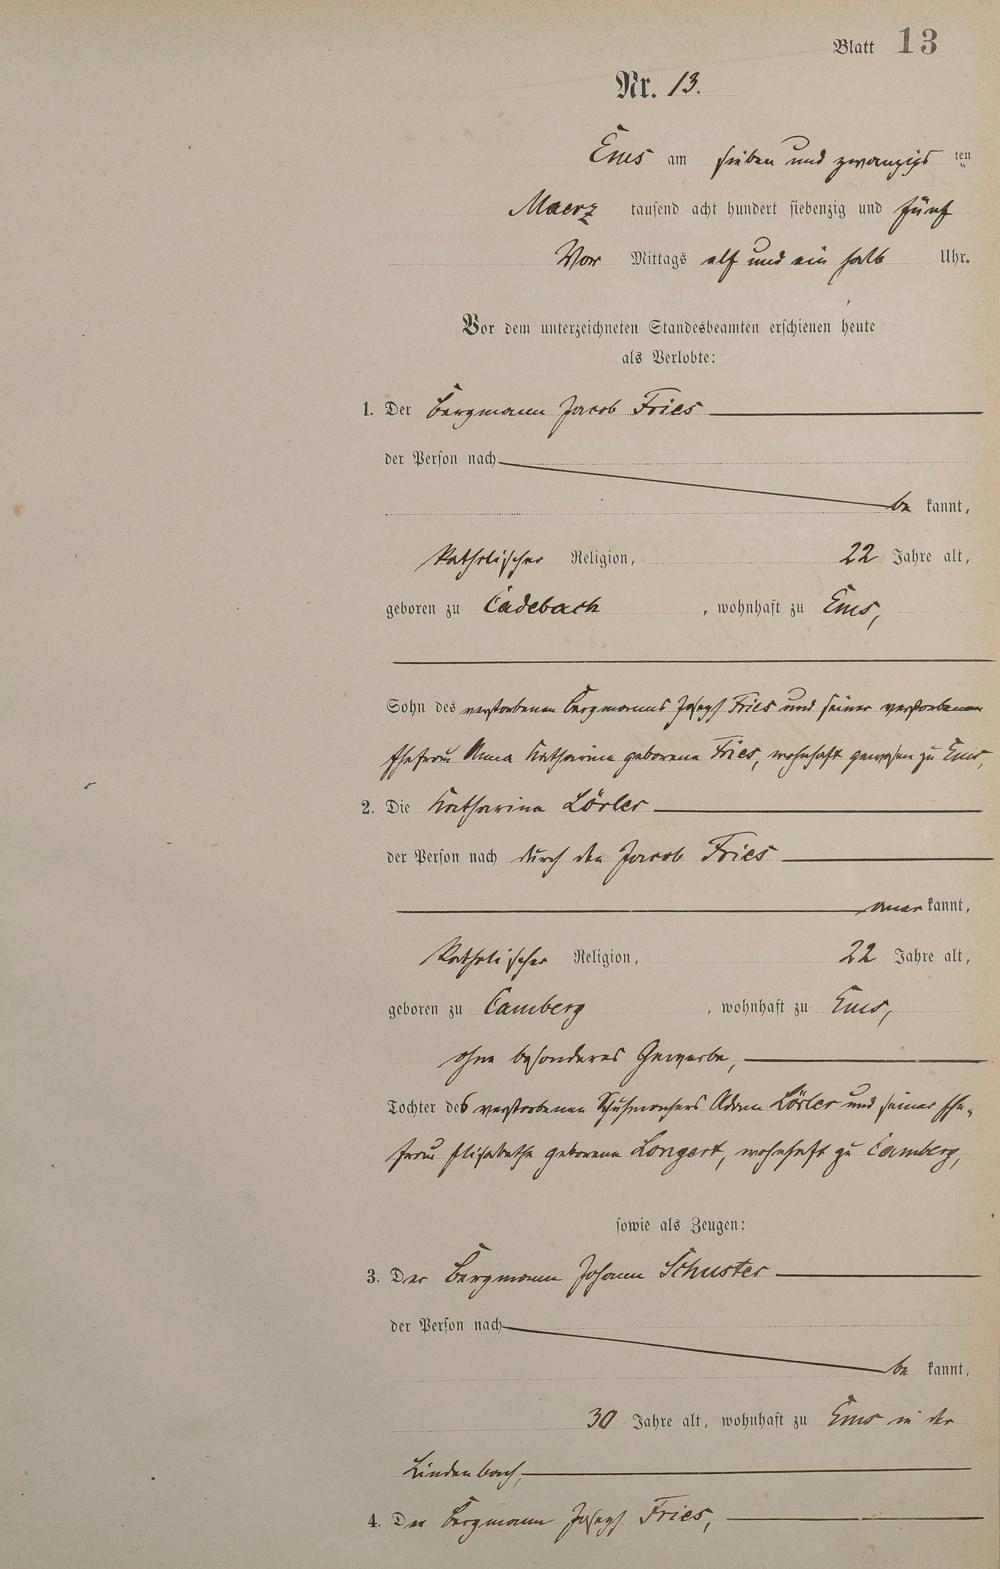 Blatt 13
Nr. 13.
Ems am sieben und zwanzigsten
Maerz tausend acht hundert siebenzig und fünf
Vor Mittags elf und ein halb Uhr.
Vor dem unterzeichneten Standesbeamten erschienen heute
als Verlobte:
1. Der Bergmann Jacob Fries
der Person nach
be kannt,
katholischer Religion, 22 Jahre alt,
geboren zu Cadebach, wohnhaft zu Ems,
Sohn des verstorbenen Bergmanns Joseph Fries und seiner verstorbenen
Ehefrau Anna Katharina geborene Fries, wohnhaft gewesen zu Ems,
2. Die Katharina Lörler
der Person nach durch den Jacob Fries
aner kannt,
katholischer Religion, 22 Jahre alt,
geboren zu Camberg, wohnhaft zu Ems,
ohne besonderes Gewerbe,
Tochter des verstorbenen Schuhmachers Adam Lörler und seiner Ehe-
frau Elisabetha geborene Longert, wohnhaft zu Camberg,
sowie als Zeugen:
3. Der Bergmann Johann Schuster
der Person nach
be kannt,
30 Jahre alt, wohnhaft zu Ems in der
Lindenbach,
4. Der Bergmann Joseph Fries,